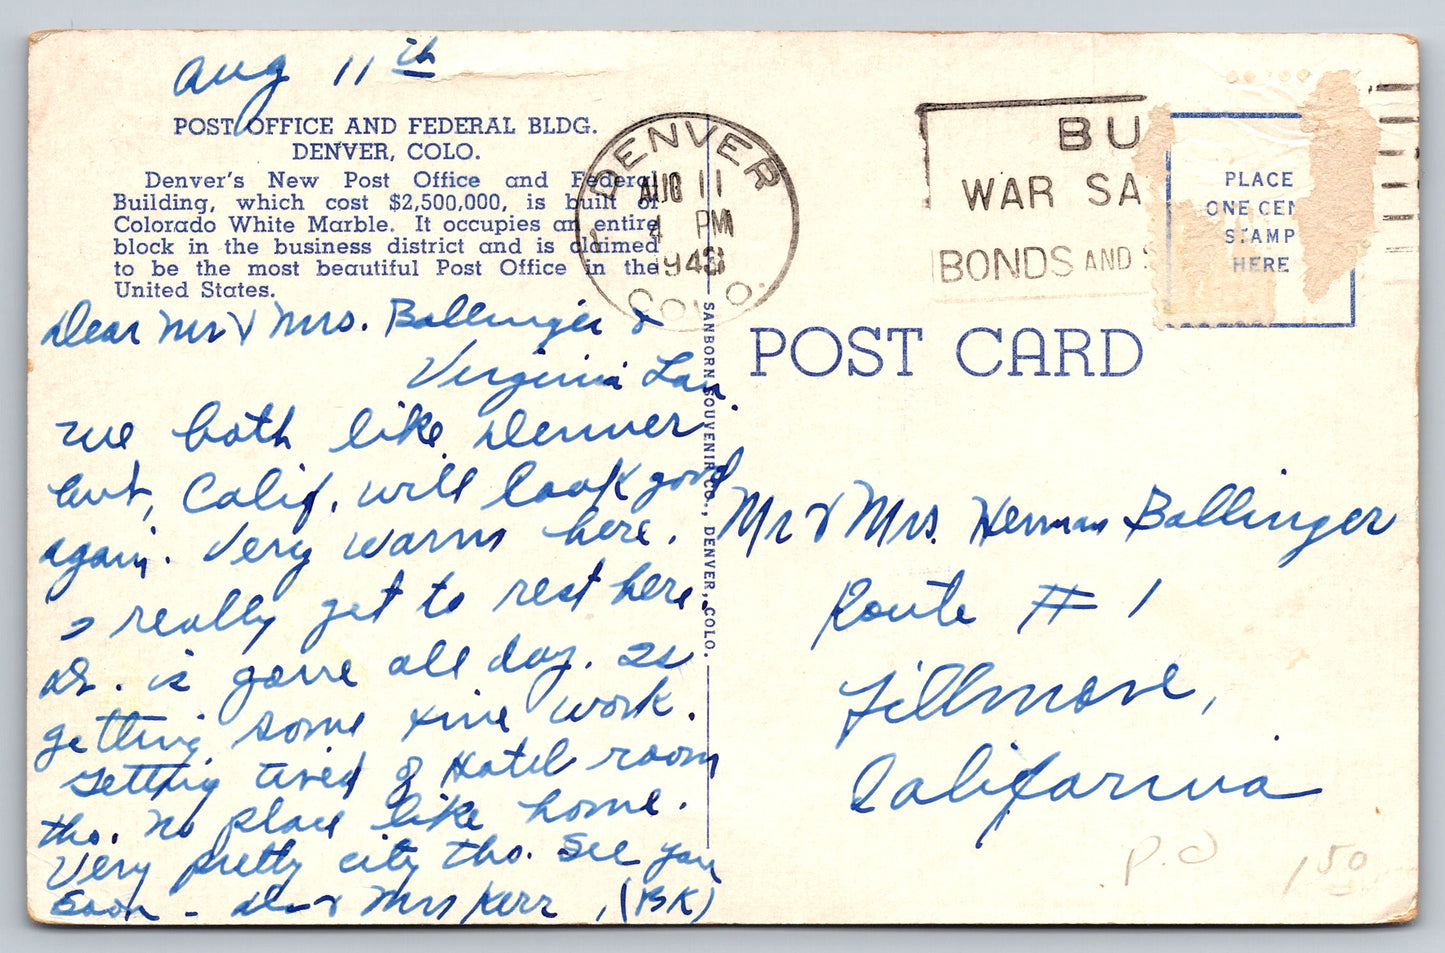 Aug 11th
POST OFFICE AND FEDERAL BLDG.
DENVER, COLO.
Denver's New Post Office and Federal
Building, which cost $2,500,000, is built of
Colorado White Marble. It occupies an entire
block in the business district and is claimed
to be the most beautiful Post Office in the
United States.
Dear Mr & Mrs. Ballinger &
Virginia Lau.
We both like Denver
but, Calif. will look good
again. Very warm here.
I really get to rest here.
Dr. is gone all day. Is
getting some fine work.
Getting tired of Hotel room
tho. No place like home.
Very pretty city tho. See you
soon - Dr & Mrs Kerr, (BK)
SANBORN SOUVENIR CO., DENVER, COLO.
DENVER
AUG 11
4 PM
1943
COLO.
BU
WAR SA
BONDS AND S
PLACE
ONE CEN
STAMP
HERE
POST CARD
Mr & Mrs. Herman Ballinger
Route # 1
Fillmore,
California
P.O
150